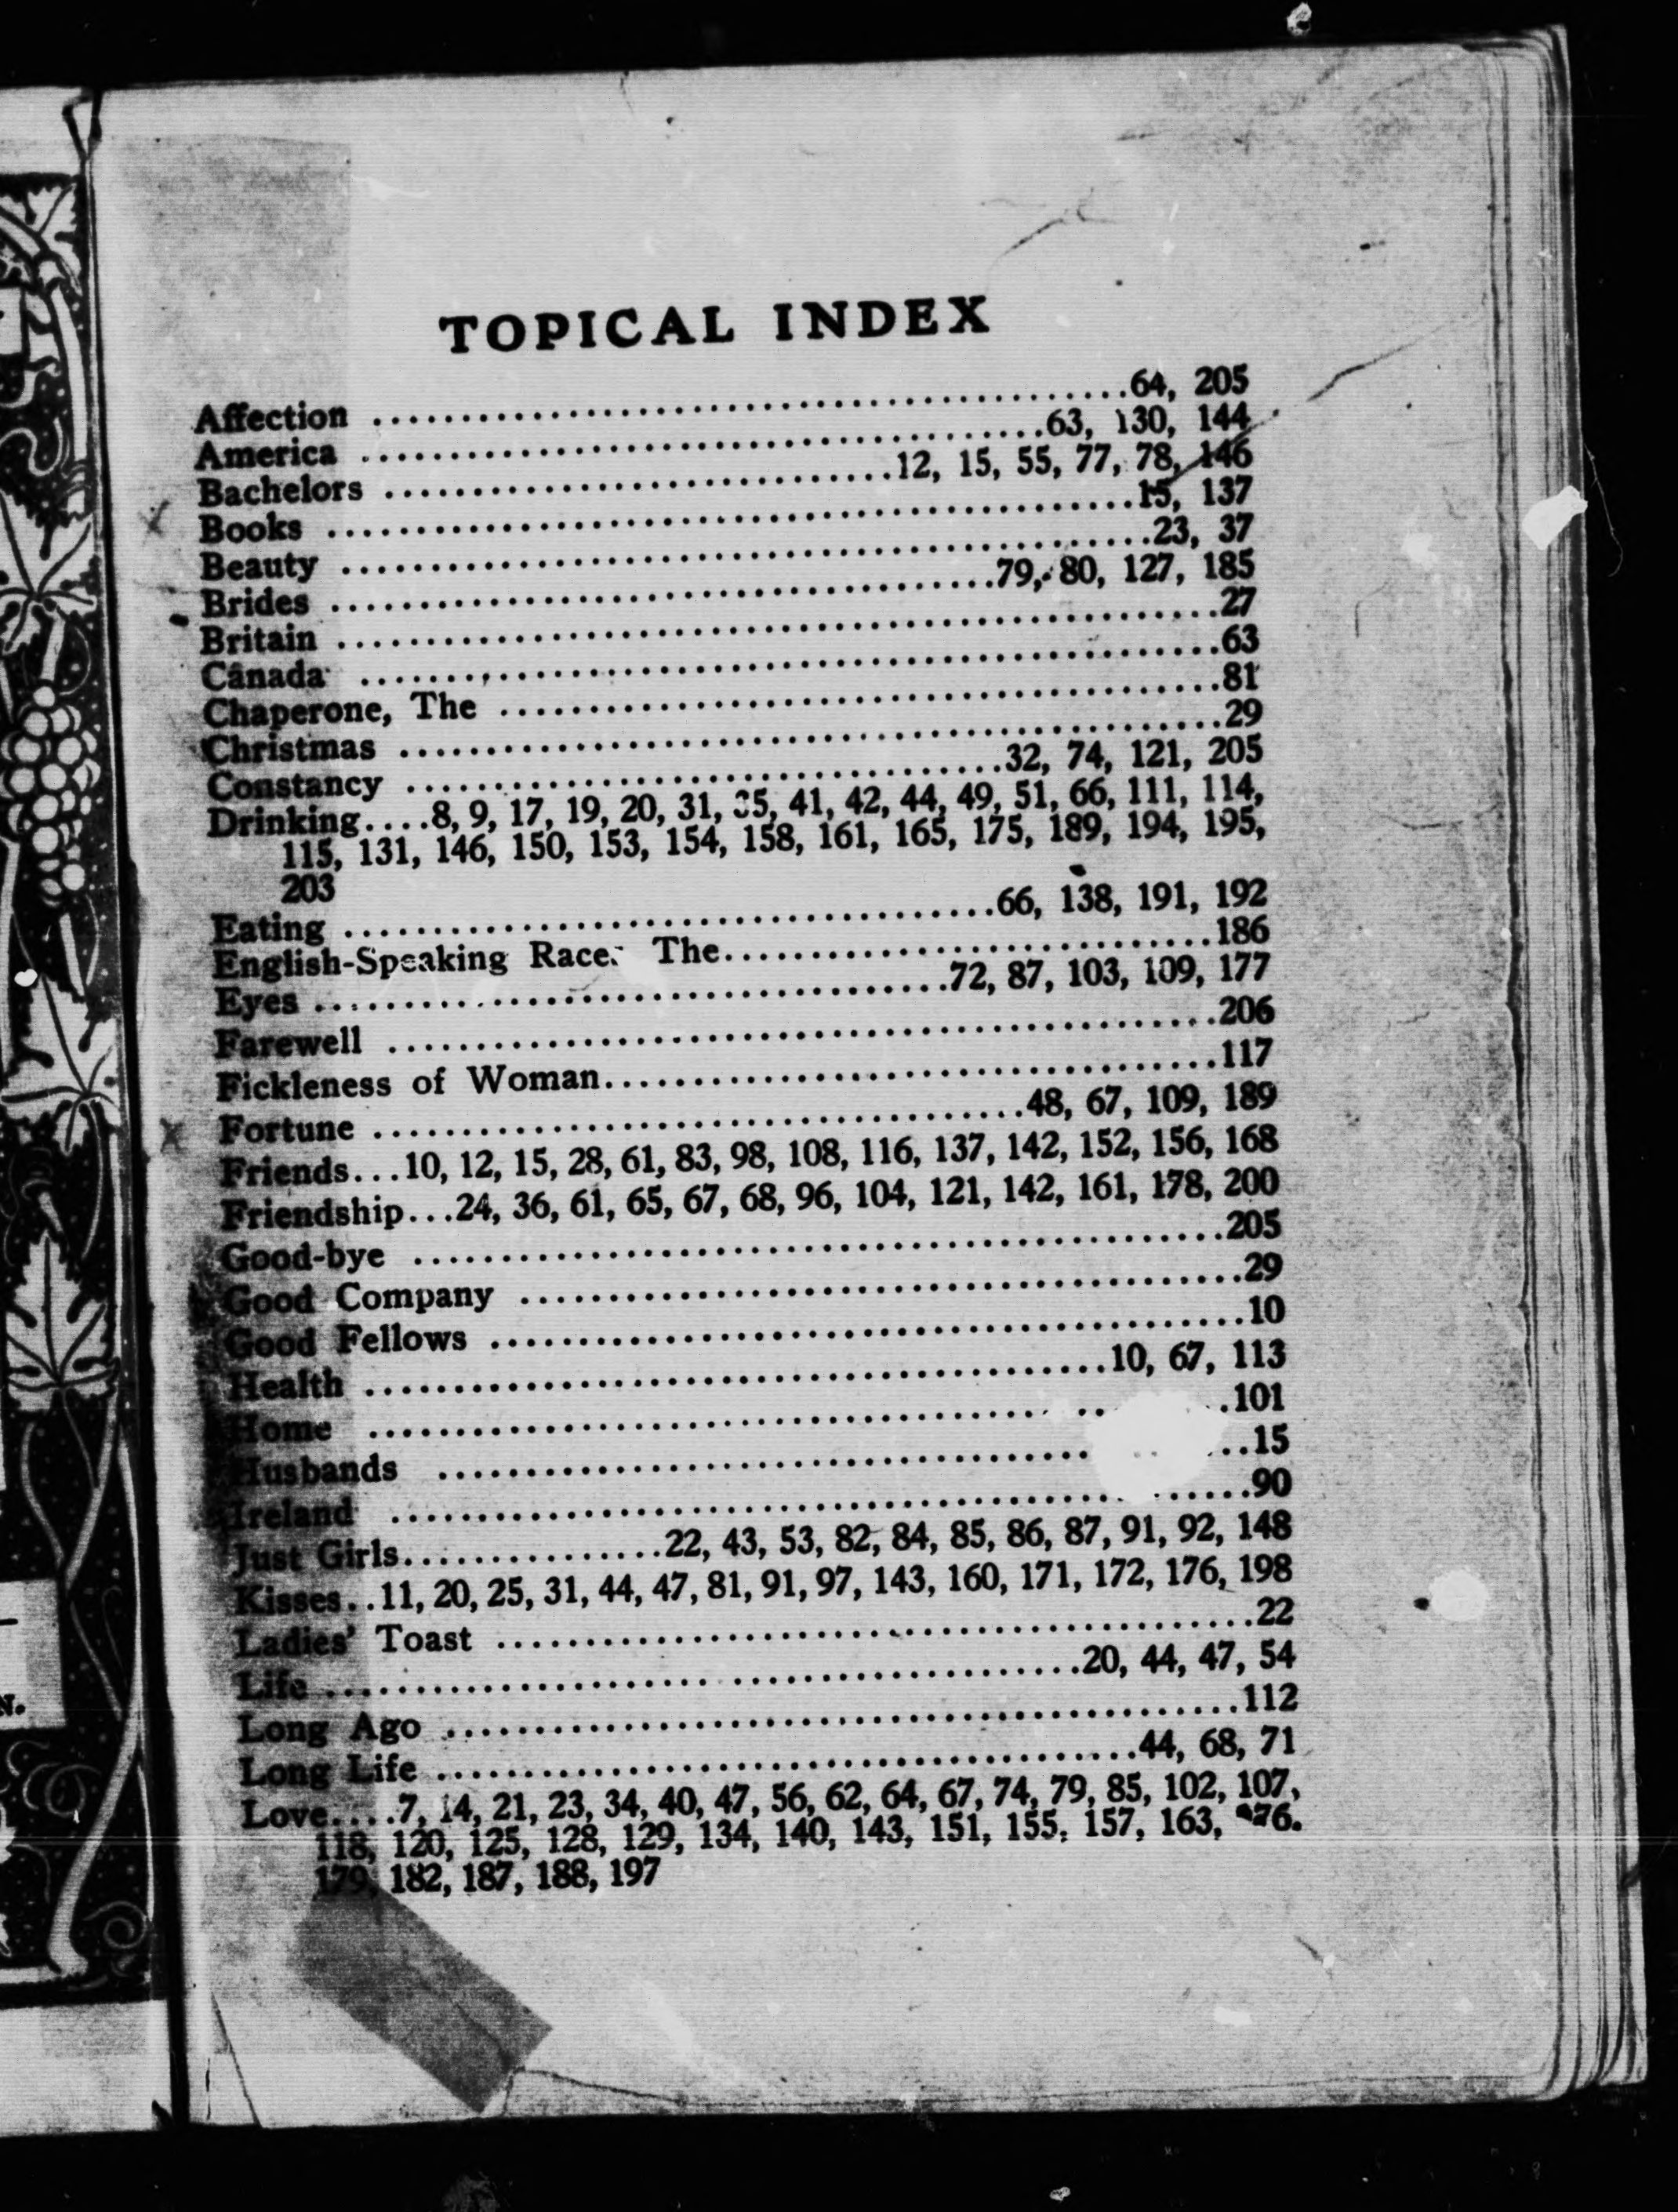 TOPICAL INDEX
Affection ........................................64, 205
America ........................................63, 130, 144
Bachelors ..............................12, 15, 55, 77, 78, 146
Books ........................................15, 137
Beauty ........................................23, 37
Brides ..............................79, 80, 127, 185
Britain ........................................27
Canada ........................................63
Chaperone, The ........................................81
Christmas ........................................29
Constancy ..............................32, 74, 121, 205
Drinking....8, 9, 17, 19, 20, 31, 35, 41, 42, 44, 49, 51, 66, 111, 114,
115, 131, 146, 150, 153, 154, 158, 161, 165, 175, 189, 194, 195,
203
Eating ..............................66, 138, 191, 192
English-Speaking Race, The..............................186
Eyes ..............................72, 87, 103, 109, 177
Farewell ........................................206
Fickleness of Woman..............................117
Fortune ..............................48, 67, 109, 189
Friends...10, 12, 15, 28, 61, 83, 98, 108, 116, 137, 142, 152, 156, 168
Friendship...24, 36, 61, 65, 67, 68, 96, 104, 121, 142, 161, 178, 200
Good-bye ........................................205
Good Company ........................................29
Good Fellows ........................................10
Health ........................................10, 67, 113
Home ........................................101
Husbands ........................................15
Ireland ........................................90
Just Girls...............22, 43, 53, 82, 84, 85, 86, 87, 91, 92, 148
Kisses..11, 20, 25, 31, 44, 47, 81, 91, 97, 143, 160, 171, 172, 176, 198
Ladies' Toast ........................................22
Life ........................................20, 44, 47, 54
Long Ago ........................................112
Long Life ........................................44, 68, 71
Love....7, 14, 21, 23, 34, 40, 47, 56, 62, 64, 67, 74, 79, 85, 102, 107,
118, 120, 125, 128, 129, 134, 140, 143, 151, 155, 157, 163,
179, 182, 187, 188, 197